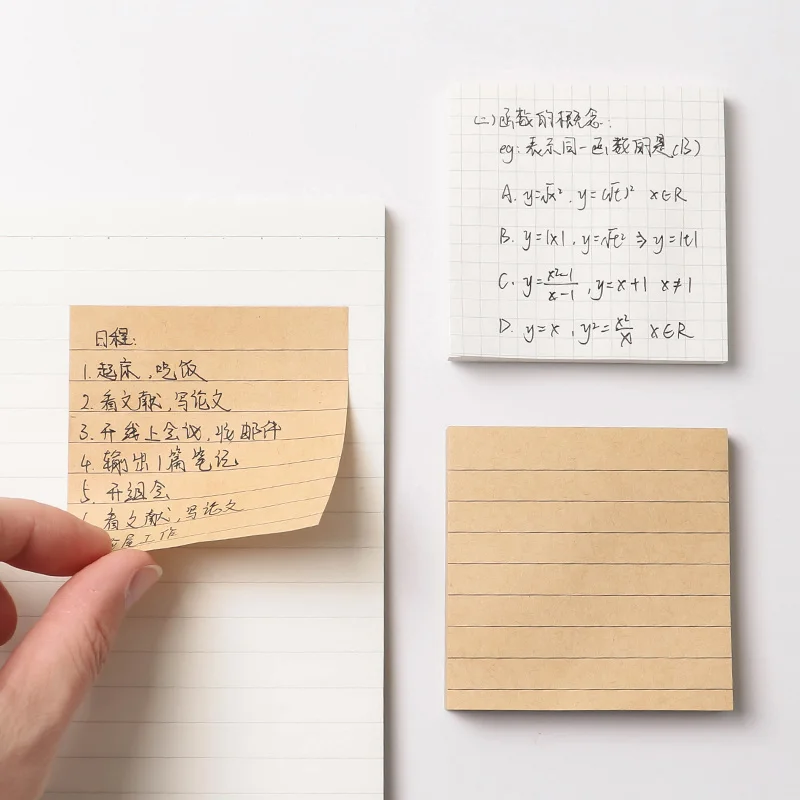 日程:
1.起床,吃饭
2.看文献,写论文
3.开线上会议,收邮件
4.输出1篇笔记
5.开组会
看文献,写论文
工作
(二)函数的概念:
eg:表示同一函数的是(B)
A. y=√x², y=(√t)² x∈R
B. y=|x|, y=√t² ⇒ y=|t|
C. y=x²-1/x-1, y=x+1 x≠1
D. y=x, y²=x²/x x∈R